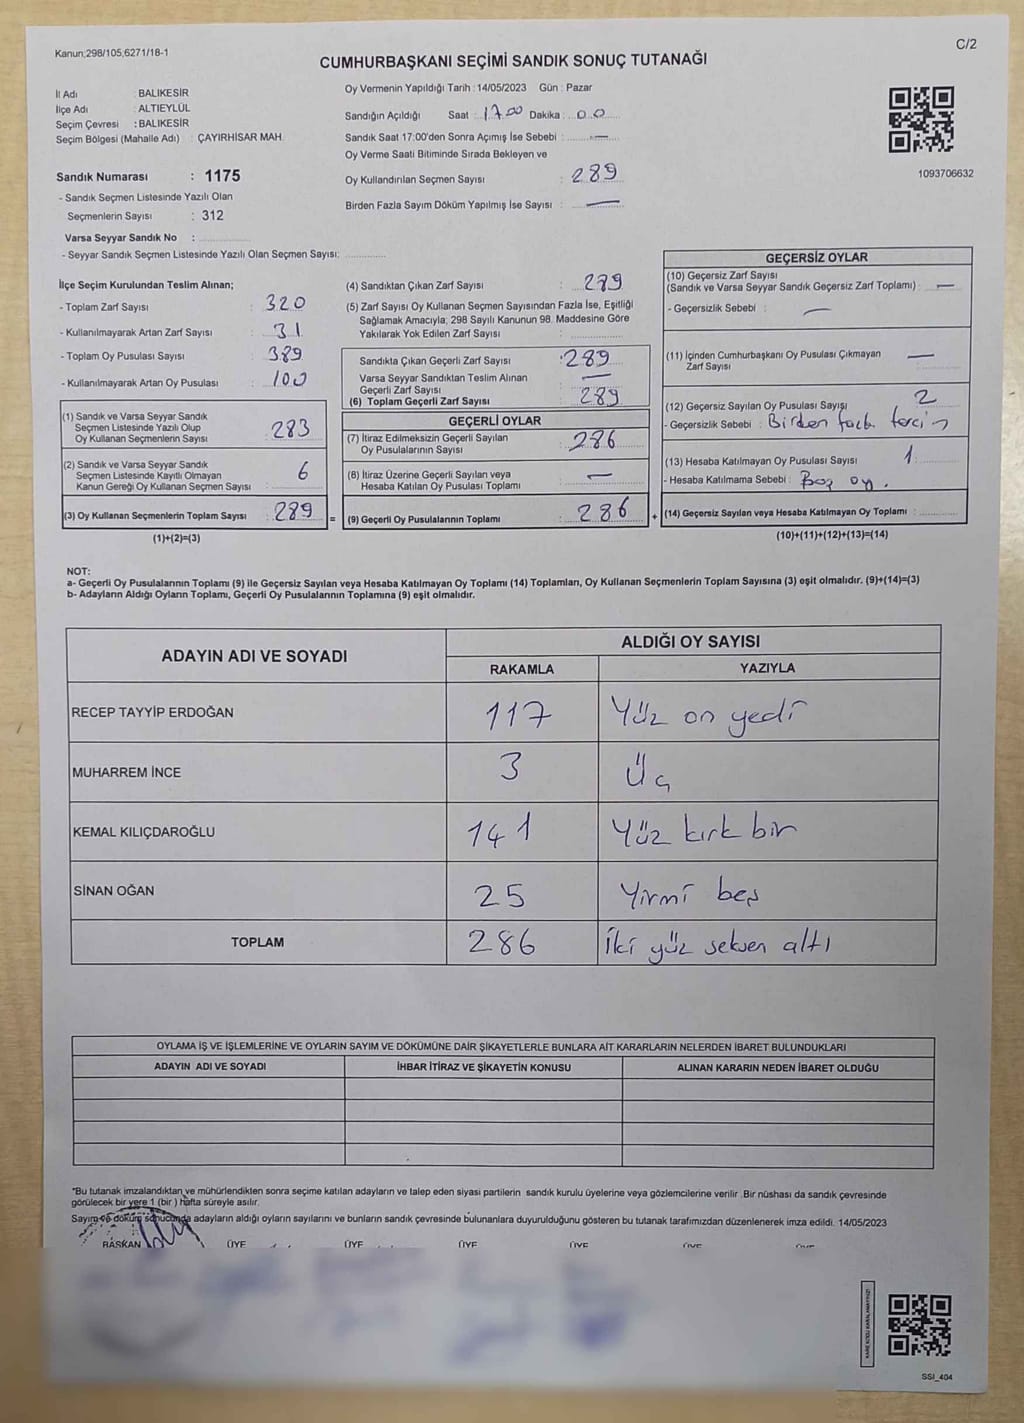 Kanun;298/105,6271/18-1
C/2
CUMHURBAŞKANI SEÇİMİ SANDIK SONUÇ TUTANAĞI
İl Adı : BALIKESİR
İlçe Adı : ALTIEYLÜL
Seçim Çevresi : BALIKESİR
Seçim Bölgesi (Mahalle Adı) : ÇAYIRHİSAR MAH.
Sandık Numarası : 1175
- Sandık Seçmen Listesinde Yazılı Olan
Seçmenlerin Sayısı : 312
Varsa Seyyar Sandık No :
- Seyyar Sandık Seçmen Listesinde Yazılı Olan Seçmen Sayısı:
Oy Vermenin Yapıldığı Tarih : 14/05/2023 Gün : Pazar
Sandığın Açıldığı Saat : 17.00 Dakika : 00
Sandık Saat 17:00'den Sonra Açımış İse Sebebi : —
Oy Verme Saati Bitiminde Sırada Bekleyen ve
Oy Kullandırılan Seçmen Sayısı : 289
Birden Fazla Sayım Döküm Yapılmış İse Sayısı : —
1093706632
İlçe Seçim Kurulundan Teslim Alınan;
- Toplam Zarf Sayısı : 320
- Kullanılmayarak Artan Zarf Sayısı : 31
- Toplam Oy Pusulası Sayısı : 389
- Kullanılmayarak Artan Oy Pusulası : 100
(1) Sandık ve Varsa Seyyar Sandık
Seçmen Listesinde Yazılı Olup
Oy Kullanan Seçmenlerin Sayısı : 283
(2) Sandık ve Varsa Seyyar Sandık
Seçmen Listesinde Kayıtlı Olmayan
Kanun Gereği Oy Kullanan Seçmen Sayısı : 6
(3) Oy Kullanan Seçmenlerin Toplam Sayısı : 289
(1)+(2)=(3)
=
(4) Sandıktan Çıkan Zarf Sayısı : 289
(5) Zarf Sayısı Oy Kullanan Seçmen Sayısından Fazla İse, Eşitliği
Sağlamak Amacıyla; 298 Sayılı Kanunun 98. Maddesine Göre
Yakılarak Yok Edilen Zarf Sayısı :
Sandıkta Çıkan Geçerli Zarf Sayısı : 289
Varsa Seyyar Sandıktan Teslim Alınan
Geçerli Zarf Sayısı : —
(6) Toplam Geçerli Zarf Sayısı : 289
GEÇERLİ OYLAR
(7) İtiraz Edilmeksizin Geçerli Sayılan
Oy Pusulalarının Sayısı : 286
(8) İtiraz Üzerine Geçerli Sayılan veya
Hesaba Katılan Oy Pusulası Toplamı : —
(9) Geçerli Oy Pusulalarının Toplamı : 286
+
GEÇERSİZ OYLAR
(10) Geçersiz Zarf Sayısı
(Sandık ve Varsa Seyyar Sandık Geçersiz Zarf Toplamı) : —
- Geçersizlik Sebebi : —
(11) İçinden Cumhurbaşkanı Oy Pusulası Çıkmayan
Zarf Sayısı : —
(12) Geçersiz Sayılan Oy Pusulası Sayışı : 2
- Geçersizlik Sebebi : Birden fazla tercih
(13) Hesaba Katılmayan Oy Pusulası Sayısı : 1
- Hesaba Katılmama Sebebi : Boş oy.
(14) Geçersiz Sayılan veya Hesaba Katılmayan Oy Toplamı :
(10)+(11)+(12)+(13)=(14)
NOT:
a- Geçerli Oy Pusulalarının Toplamı (9) ile Geçersiz Sayılan veya Hesaba Katılmayan Oy Toplamı (14) Toplamları, Oy Kullanan Seçmenlerin Toplam Sayısına (3) eşit olmalıdır. (9)+(14)=(3)
b- Adayların Aldığı Oyların Toplamı, Geçerli Oy Pusulalarının Toplamına (9) eşit olmalıdır.
ADAYIN ADI VE SOYADI ALDIĞI OY SAYISI
RAKAMLA YAZIYLA
RECEP TAYYİP ERDOĞAN 117 Yüz on yedi
MUHARREM İNCE 3 Üç
KEMAL KILIÇDAROĞLU 141 Yüz kırk bir
SİNAN OĞAN 25 Yirmi beş
TOPLAM 286 İki yüz seksen altı
OYLAMA İŞ VE İŞLEMLERİNE VE OYLARIN SAYIM VE DÖKÜMÜNE DAİR ŞİKAYETLERLE BUNLARA AİT KARARLARIN NELERDEN İBARET BULUNDUKLARI
ADAYIN ADI VE SOYADI İHBAR İTİRAZ VE ŞİKAYETİN KONUSU ALINAN KARARIN NEDEN İBARET OLDUĞU
*Bu tutanak imzalandıktan ve mühürlendikten sonra seçime katılan adayların ve talep eden siyasi partilerin sandık kurulu üyelerine veya gözlemcilerine verilir. Bir nüshası da sandık çevresinde
görülecek bir yere 1 (bir ) hafta süreyle asılır.
Sayım ve döküm sonucunda adayların aldığı oyların sayılarını ve bunların sandık çevresinde bulunanlara duyurulduğunu gösteren bu tutanak tarafımızdan düzenlenerek imza edildi. 14/05/2023
BAŞKAN ÜYE ÜYE ÜYE ÜYE ÜYE ÜYE
SSI_404